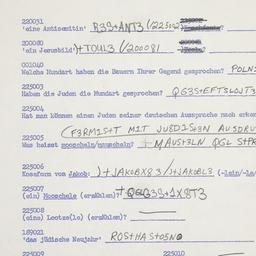 220031
'eine Antisemitin' R3S+ANT3 (/225002
200080
'ein Jesusbild' )+TOUL3 (/200081
001040
Welche Mundart haben die Bauern Ihrer Gegend gesprochen? POLN
225003
Haben die Juden die Mundart gesprochen?
225004
Hat man können einen Juden seiner deutschen Aussprache nach erken
(F3RMIS+T MIT JUEDIS+3N AUSDRU
225005
Was heisst mooscheln/mauscheln? +MAUS+3LN
225006
Koseform von Jakob: )+JAKOBX83 /+JAKOBL3 (-lein/-la
225007
(ein) Mooschele (erzählen)?
225008
(eine) Lootze(lo) (erzählen)?
189021
'das jüdische Neujahr' ROS+HAS+O5N@
225009 225010